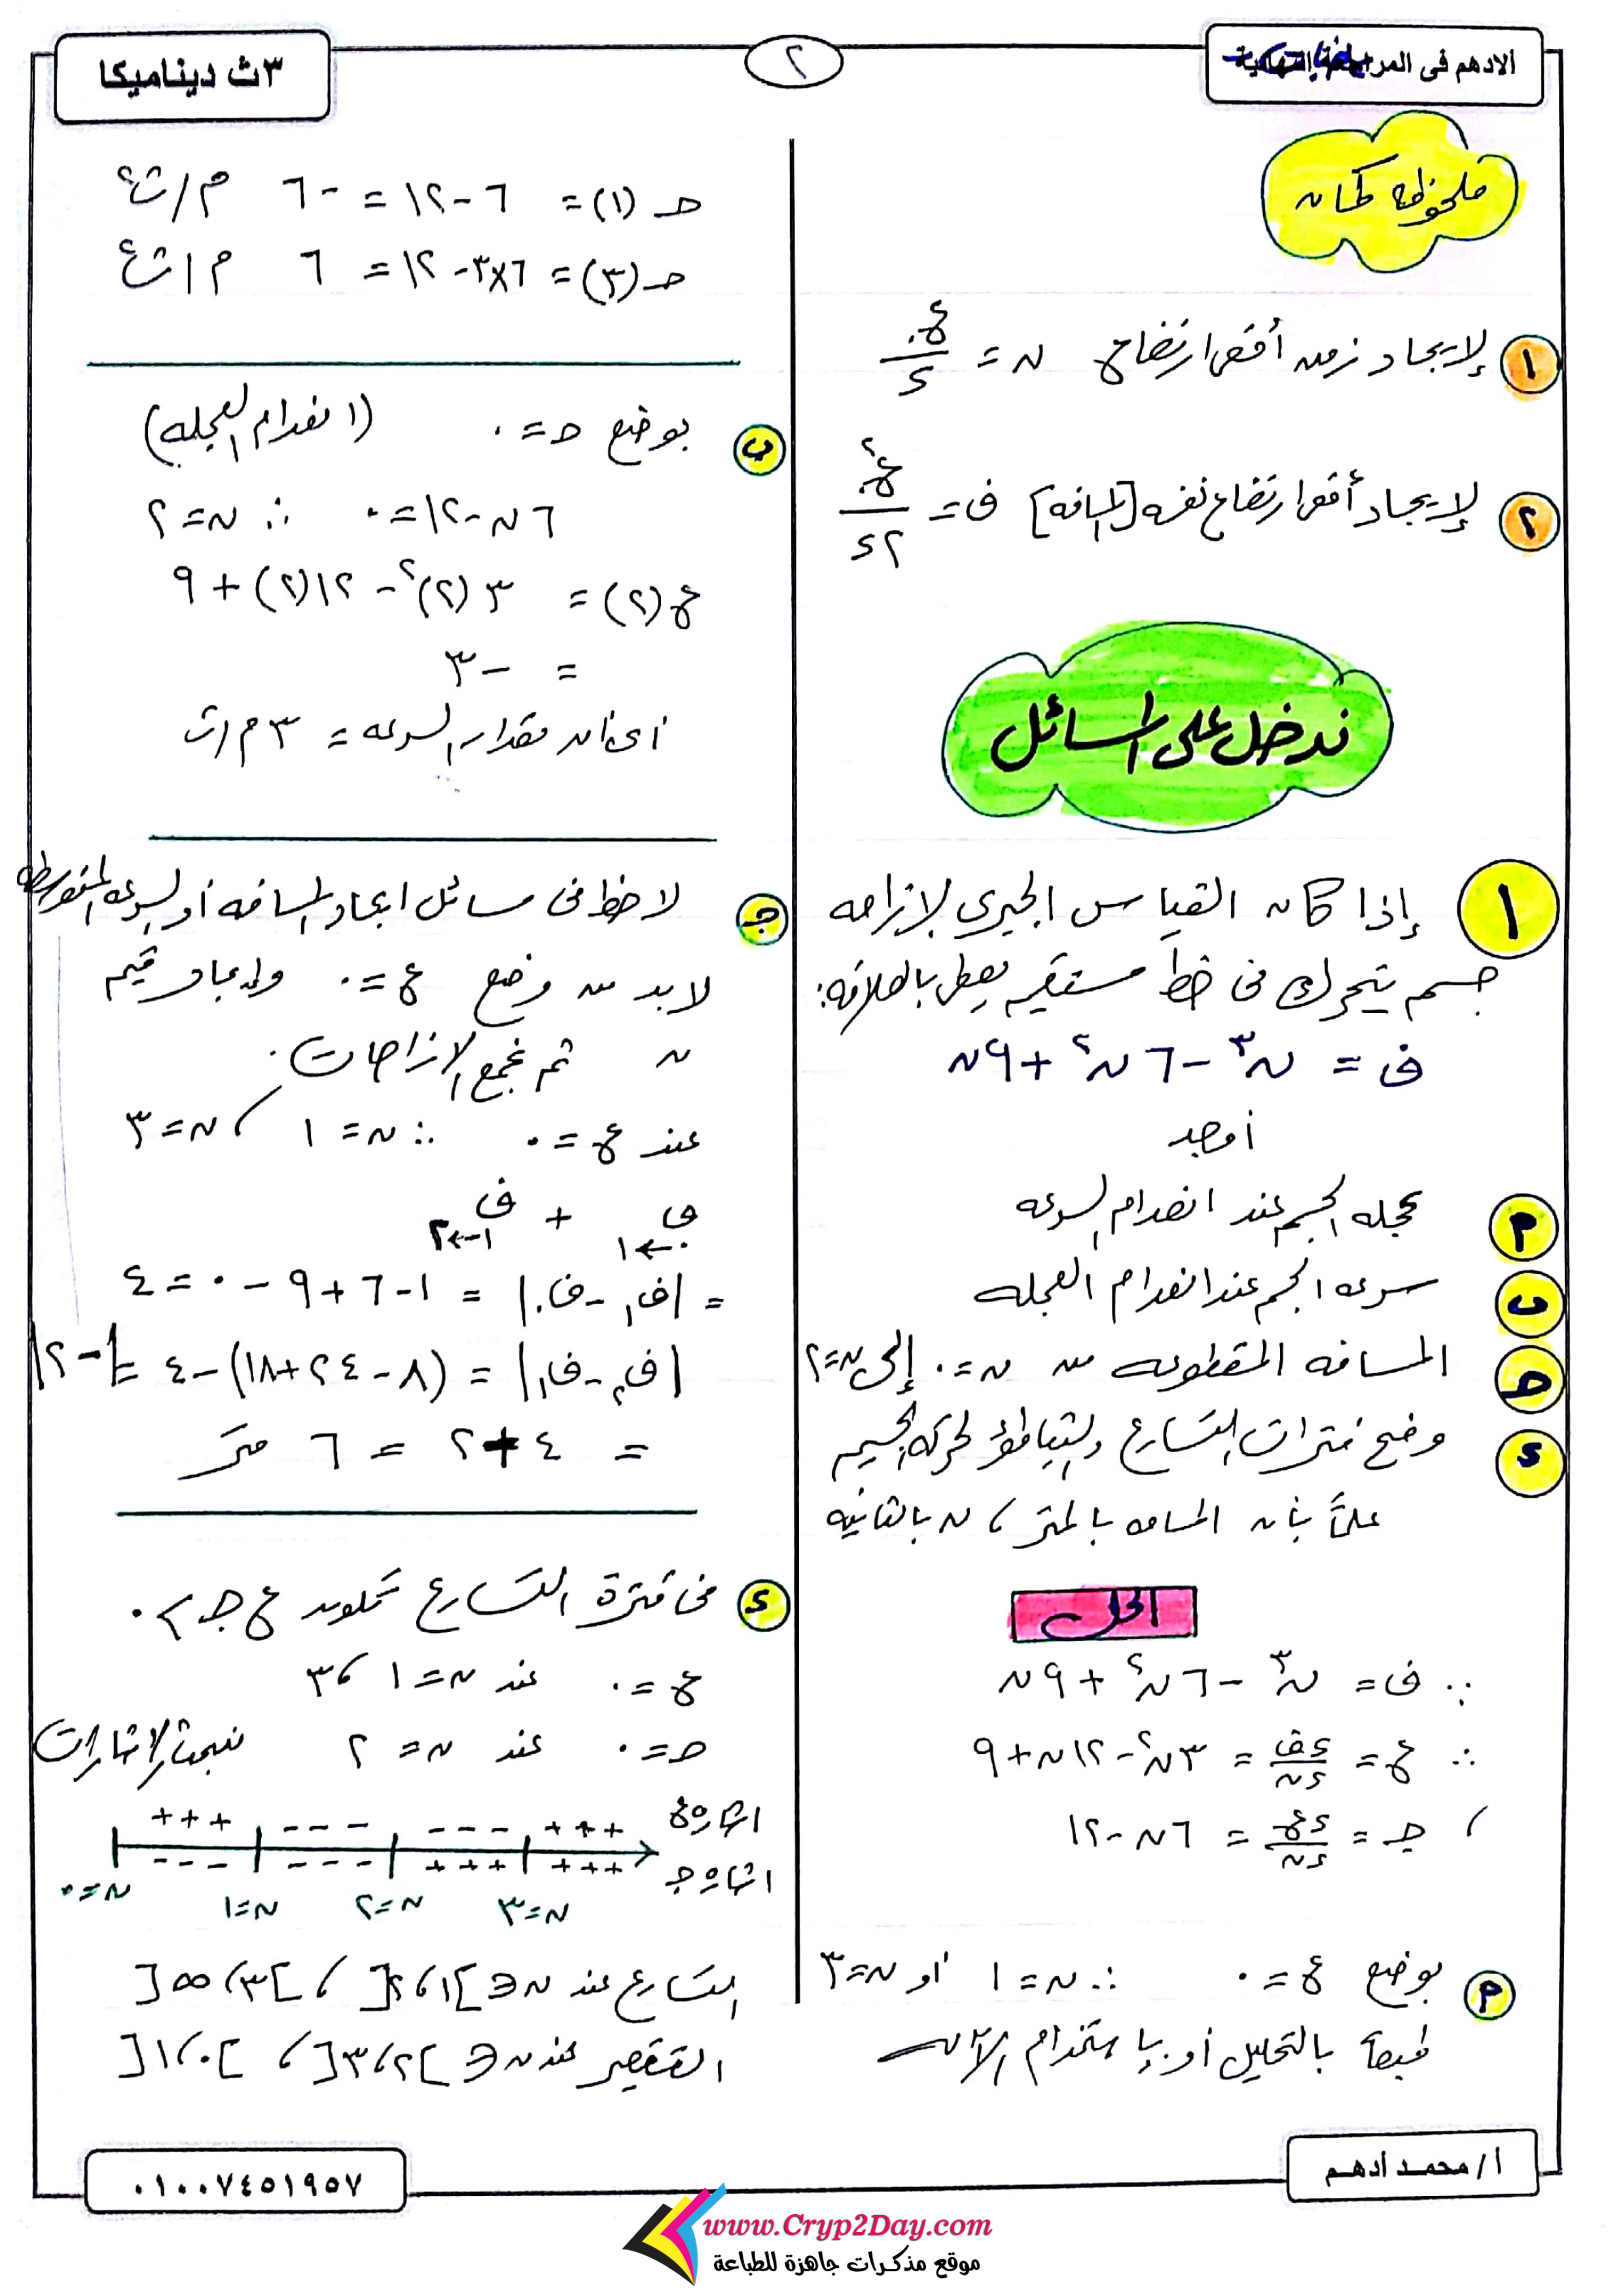 الادهم فى المراجعة النهائية
٢
٣ث ديناميكا
ملحوظة كمان
١ لإيجاد زمن أقصى ارتفاع ن = ع٠ / ء
٢ لإيجاد أقصى ارتفاع نفسه [المسافه] ف = ع٠² / ٢ء
ندخل على المسائل
١ إذا كان القياس الجبرى لإزاحه
جسم يتحرك فى خط مستقيم يعطى بالعلاقه:
ف = ن³ - ٦ن² + ٩ن
أوجد
م عجله الجسم عند انعدام السرعه
ب سرعه الجسم عند انعدام العجله
حـ المسافه المقطوعه من ن = ٠ إلى ن = ٢
ء وضح فترات التسارع والتباطؤ لحركه الجسم
علماً بأن المسافه بالمتر ، ن بالثانيه
الحل
∵ ف = ن³ - ٦ن² + ٩ن
∴ ع = ءف / ءن = ٣ن² - ١٢ن + ٩
، حـ = ءع / ءن = ٦ن - ١٢
م بوضع ع = ٠ ∴ ن = ١ أو ن = ٣
طبعاً بالتحليل أو باستخدام الآله
حـ (١) = ٦ - ١٢ = -٦ م/ث²
حـ (٣) = ٦×٣ - ١٢ = ٦ م/ث²
ب بوضع حـ = ٠ (انعدام العجله)
٦ن - ١٢ = ٠ ∴ ن = ٢
ع (٢) = ٣(٢)² - ١٢(٢) + ٩
= -٣
اى ان مقدار السرعه = ٣ م/ث
جـ لاحظ فى مسائل ايجاد المسافه أو السرعه المتوسطه
لابد من وضع ع = ٠ وإيجاد قيم
ن ثم نجمع الإزاحات.
عند ع = ٠ ∴ ن = ١ ، ن = ٣
ف ٠←١ + ف ١←٢
= |ف١ - ف٠| = ١ - ٦ + ٩ - ٠ = ٤
|ف٢ - ف١| = (٨ - ٢٤ + ١٨) - ٤ = |-٢|
= ٤ + ٢ = ٦ متر
ء فى فترة التسارع تكون ع حـ > ٠
ع = ٠ عند ن = ١ ، ٣
حـ = ٠ عند ن = ٢ نبحث الاشارات
+++ --- --- +++ اشارة ع
--- --- +++ +++ اشارة جـ
ن=٠ ن=١ ن=٢ ن=٣
التسارع عند ن ∈ ]١،٢[ ، ]٣،∞[
التقصير عند ن ∈ ]٢،٣[ ، ]٠،١[
أ/ محمد أدهم
٠١٠٠٧٤٥١٩٥٧
www.Cryp2Day.com
موقع مذكرات جاهزة للطباعة